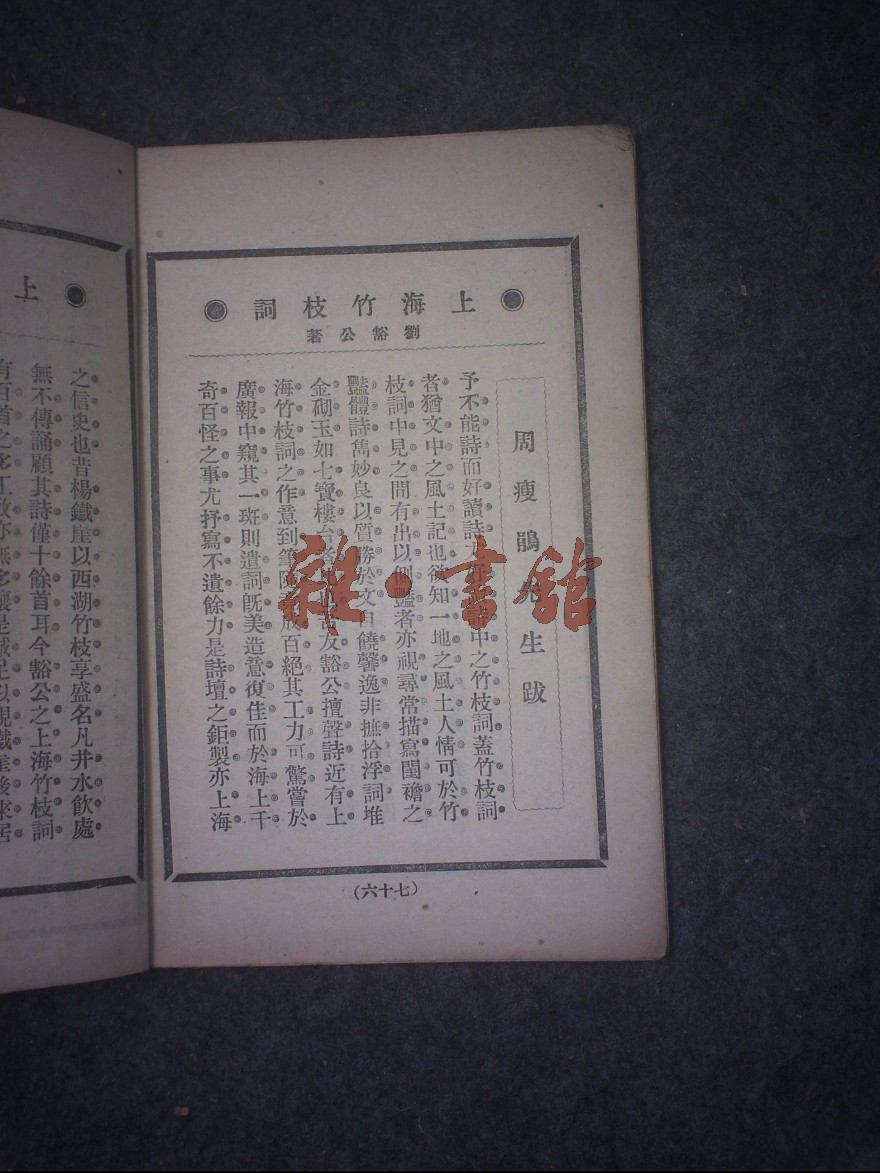 上海竹枝詞
劉豁公著
周瘦鵑先生跋
予不能詩而好讀詩尤好詩中之竹枝詞蓋竹枝詞
者猶文中之風土記也欲知一地之風土人情可於竹
枝詞中見之間有出以側豔者亦視尋常描寫閨襜之
豔體詩雋妙良以質勝於文自饒馨逸非摭拾浮詞堆
金砌玉如七寶樓台者比也吾友豁公擅聲詩近有上
海竹枝詞之作意到筆隨者成百絕其工力可驚嘗於
廣報中窺其一斑則遣詞旣美造意復佳而於海上千
奇百怪之事尤抒寫不遺餘力是詩壇之鉅製亦上海
(七十六)
上
之信史也昔楊鐵崖以西湖竹枝享盛名凡井水飲處
無不傳誦顧其詩僅十餘首耳今豁公之上海竹枝詞
有百首之多工
雜·書舘